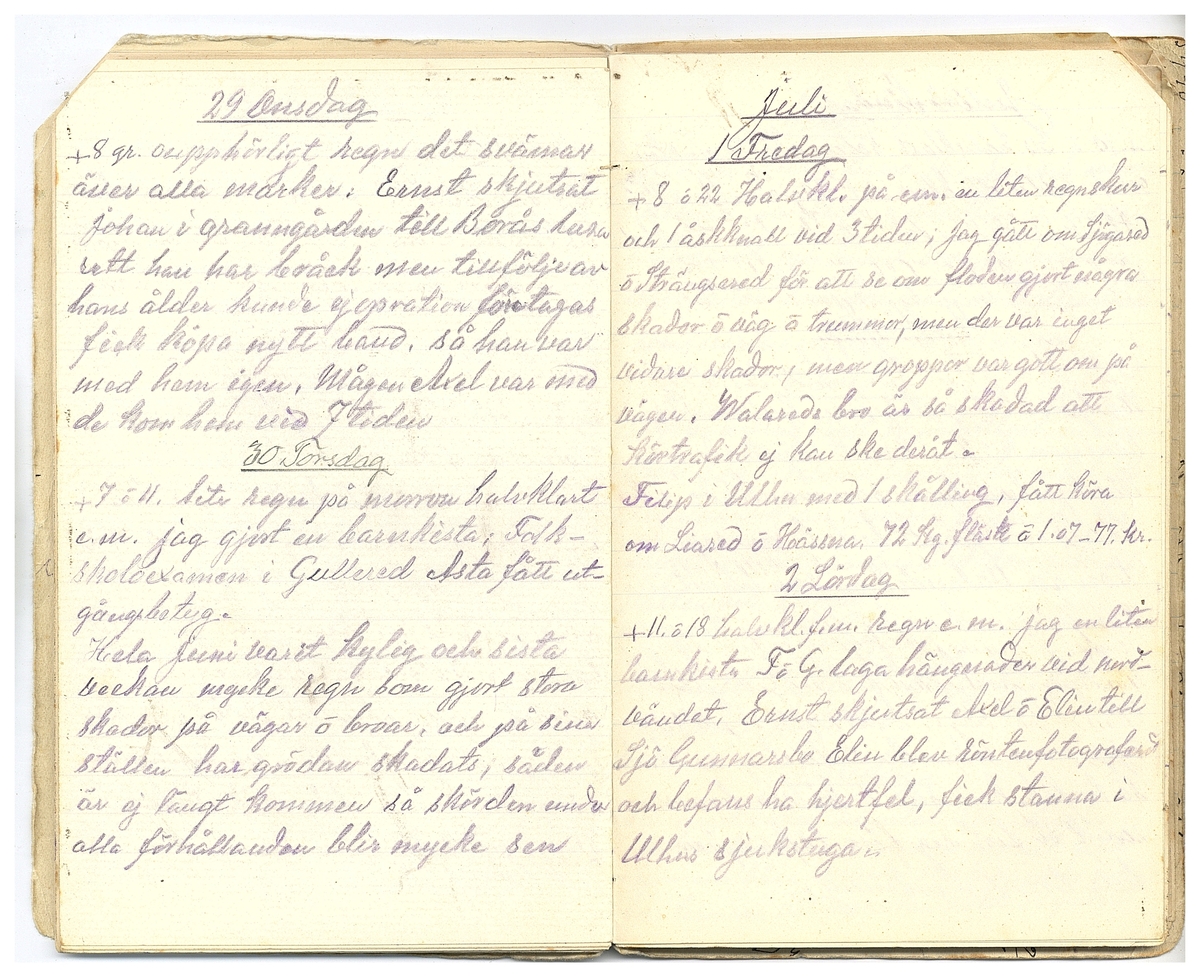 29 Onsdag
+8 gr. oupphörligt regn det svämar
över alla marker. Ernst skjutsat
Johan i granngården till Borås lasa
rett han har bråck men tillfölje av
hans ålder kunde ej opration företagas
fick köpa nytt band. så han var
med hem igen. Mågen Axel var med
de kom hem vid 7 tiden
30 Torsdag
+7 ö 11. lite regn på morron halvklart
e.m. jag gjort en barnkista; Folk-
skolexamen i Gullered Asta fått ut-
gångsbetyg.
Hela Juni varit kylig och sista
veckan mycke regn som gjort stora
skador på vägar ö broar, och på sina
ställen har grödan skadats; säden
är ej långt kommen så skörden under
alla förhållanden blir mycke sen
Juli
1 Fredag
+8 ö 22 Halvkl. på em. en liten regnskur
och 1 åskknall vid 3 tiden; jag gått om Sjögared
ö Strängsered för att se om floden gjort några
skador ö väg ö trummor, men der var inget
vidare skador, men groppor var gott om på
vägen. Walareds bro är så skadad att
körtrafik ej kan ske deråt.
Filip i Ulhu med 1 skålling, fått köra
om Liared ö Hössna. 72 Kg. fläsk ā 1.07-77. Kr.
2 Lördag
+11. ö 18 halvkl. f.m. regn e.m. jag en liten
barnkista F ö G. laga hängerader vid nord-
vändet. Ernst skjutsat Axel ö Elin till
Sjö Gunnarsbo Elin blev röntenfotograferad
och befans ha hjertfel, fick stanna i
Ulhus sjukstuga.